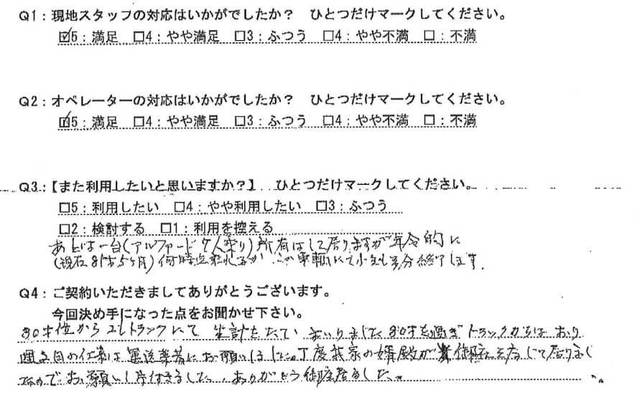 Q1：現地スタッフの対応はいかがでしたか？　ひとつだけマークしてください。
☑5：満足　□4：やや満足　□3：ふつう　□4：やや不満　□：不満
Q2：オペレーターの対応はいかがでしたか？　ひとつだけマークしてください。
☑5：満足　□4：やや満足　□3：ふつう　□4：やや不満　□：不満
Q3：【また利用したいと思いますか？】　ひとつだけマークしてください。
□5：利用したい　□4：やや利用したい　□3：ふつう
□2：検討する　□1：利用を控える
あとは一台(アルファード7人乗り)所有はして居りますが年令的に
(現在81才5ヶ月)何時迄乗れるか この車輌にて小生も多分終了します。
Q4：ご契約いただきましてありがとうございます。
今回決め手になった点をお聞かせ下さい。
トラックにて 生計をたてて まいりました 80才も過ぎトラックからは おり
の仕事は 運送業者に お願い 丁度我家の婿殿が
お願いし ました ありがとう御座居ました。